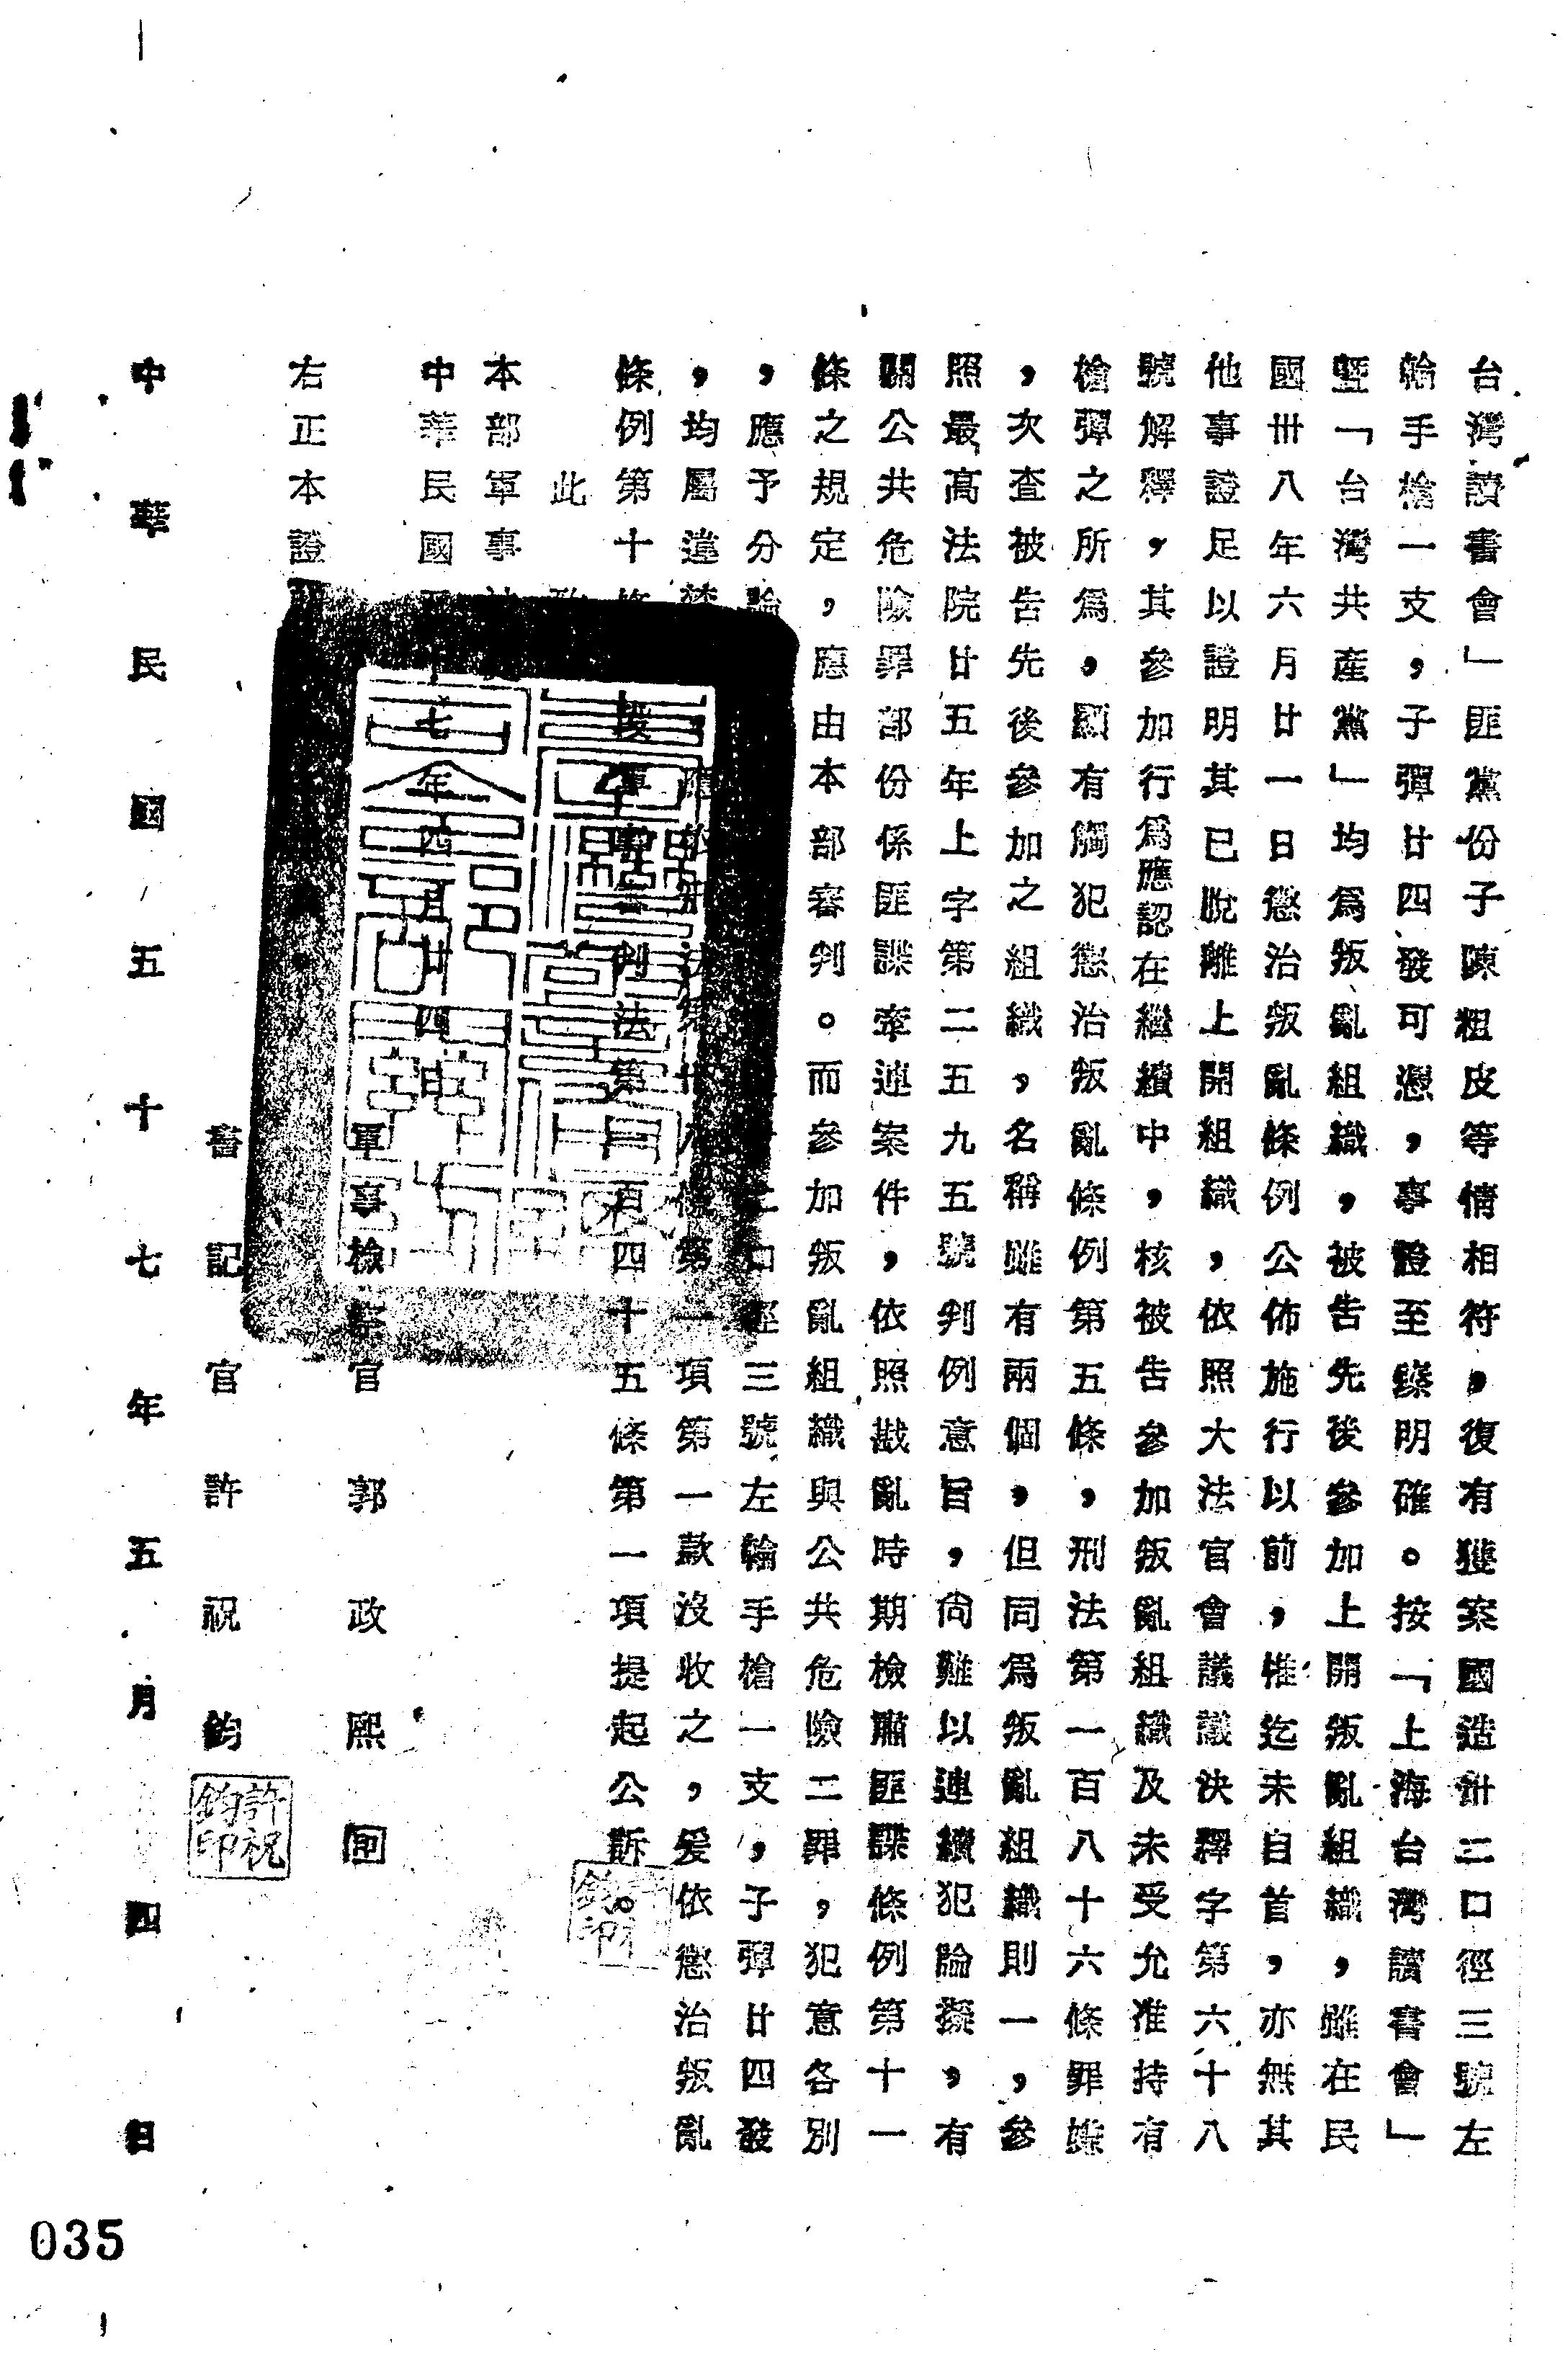 台灣讀書會」匪黨份子陳粗皮等情相符，復有獲案國造卅二口徑三號左
輪手槍一支，子彈廿四發可憑，事證至臻明確。按「上海台灣讀書會」
暨「台灣共產黨」均為叛亂組織，被告先後參加上開叛亂組織，雖在民
國卅八年六月廿一日懲治叛亂條例公佈施行以前，惟迄未自首，亦無其
他事證足以證明其已脫離上開組織，依照大法官會議議決釋字第六十八
號解釋，其參加行為應認在繼續中，核被告參加叛亂組織及未受允准持有
槍彈之所為，顯有觸犯懲治叛亂條例第五條，刑法第一百八十六條罪嫌
，次查被告先後參加之組織，名稱雖有兩個，但同為叛亂組織則一，參
照最高法院廿五年上字第二五九五號判例意旨，尚難以連續犯論擬，有
關公共危險罪部份係匪諜牽連案件，依照戡亂時期檢肅匪諜條例第十一
條之規定，應由本部審判。而參加叛亂組織與公共危險二罪，犯意各別
，應予分論 二口徑三號左輪手槍一支，子彈廿四發
，均屬違禁 法第卅八條第一項第一款沒收之，爰依懲治叛亂
條例第十條 段軍事審判法第一百四十五條第一項提起公訴。
此 致
本部軍事法
中華民國 十七年四月廿四日
軍事檢察官 郭政熙 印
右正本證明
書記官 許祝鈞
許祝鈞印
中華民國五十七年五月四日
035